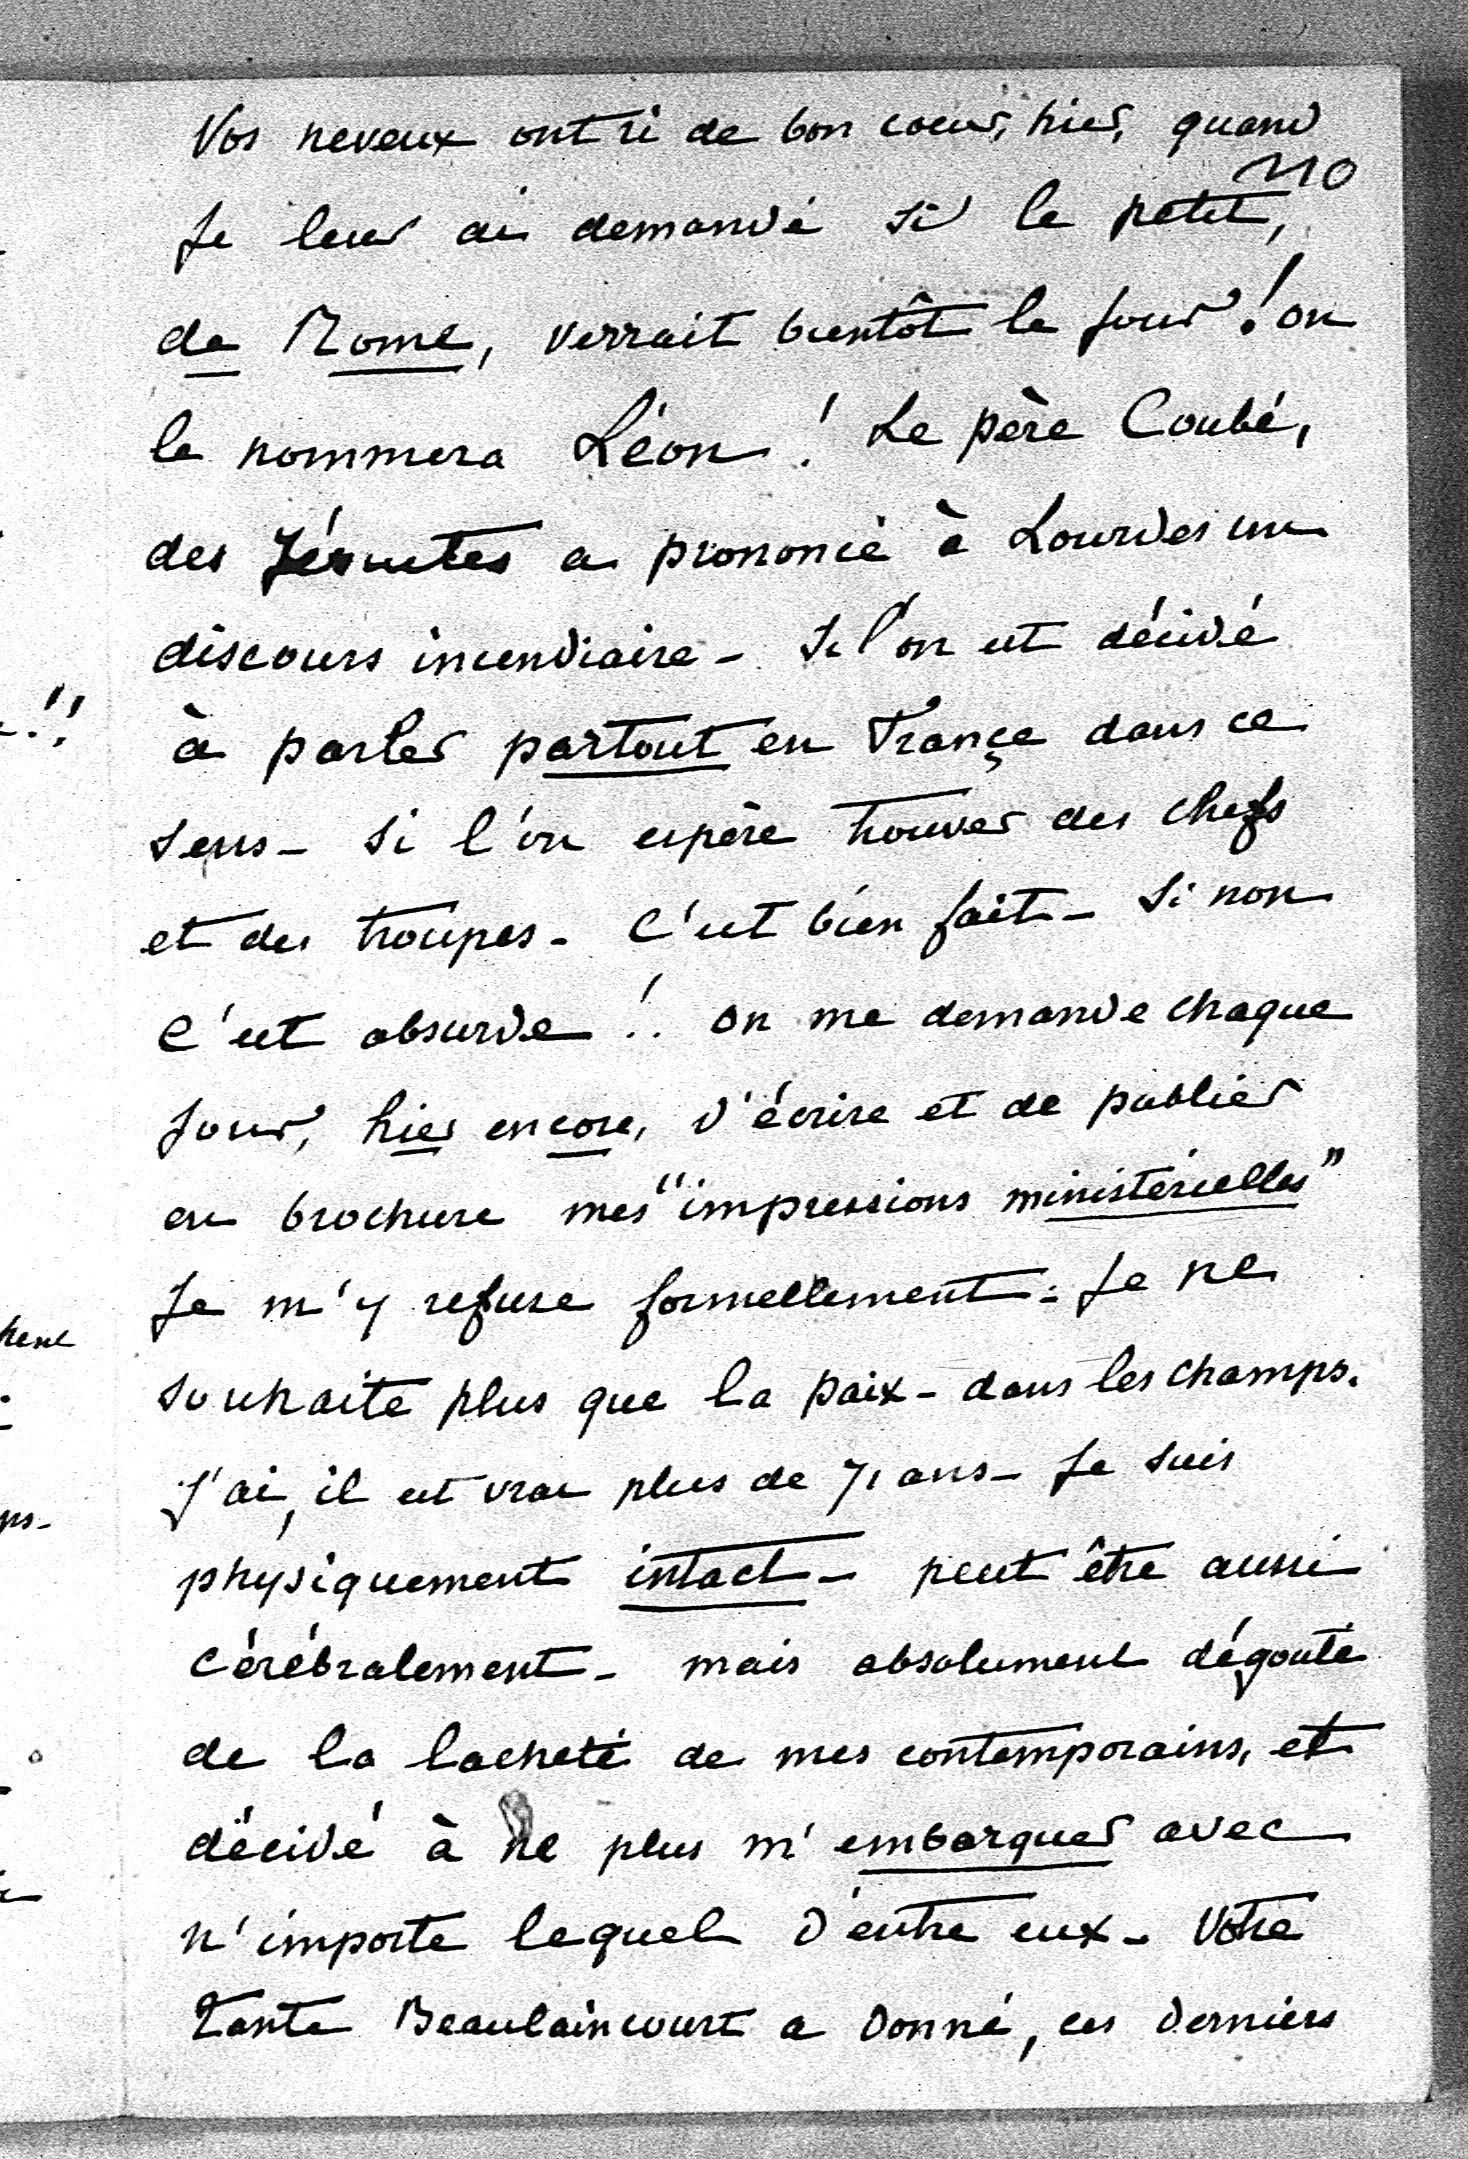 Vos neveux ont ri de bon coeur, hier, quand
110
Je leur ai demandé si le petit,
de Rome, verrait bientôt le jour! on
le nommera Léon! Le père Coubé,
des Jésuites a prononcé à Lourdes un
discours incendiaire - Si l'on est décidé
à parler partout en Françe dans ce
sens - Si l'on espère trouver des chefs
et des troupes - C'est bien fait - Si non
C'est absurde!. on me demande chaque
jour, hier encore, d'écrire et de publier
en brochure mes "impressions ministérielles"
Je m'y refuse formellement - Je ne
souhaite plus que la paix - dans les champs.
J'ai, il est vrai plus de 71 ans - Je suis
physiquement intact - peut être aussi
cérébralement - mais absolument dégouté
de la lacheté de mes contemporains, et
décidé à ne plus m'embarquer avec
n'importe lequel d'entre eux - Votre
Tante Beaulaincourt a donné, ces derniers
!!